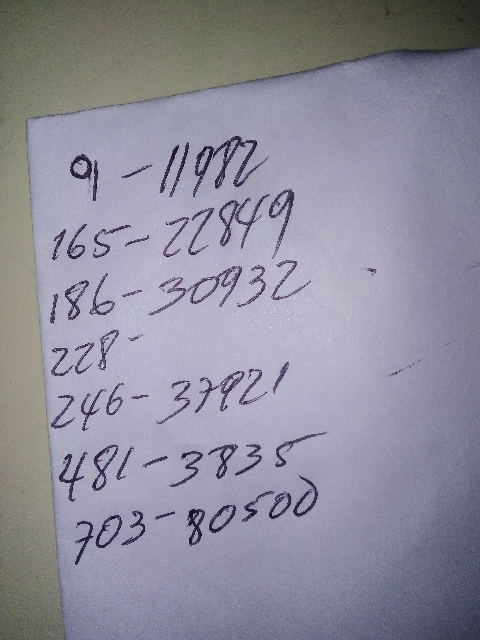 91 - 11982
165 - 22849
186 - 30932
228 -
246 - 37921
481 - 3835
703 - 80500